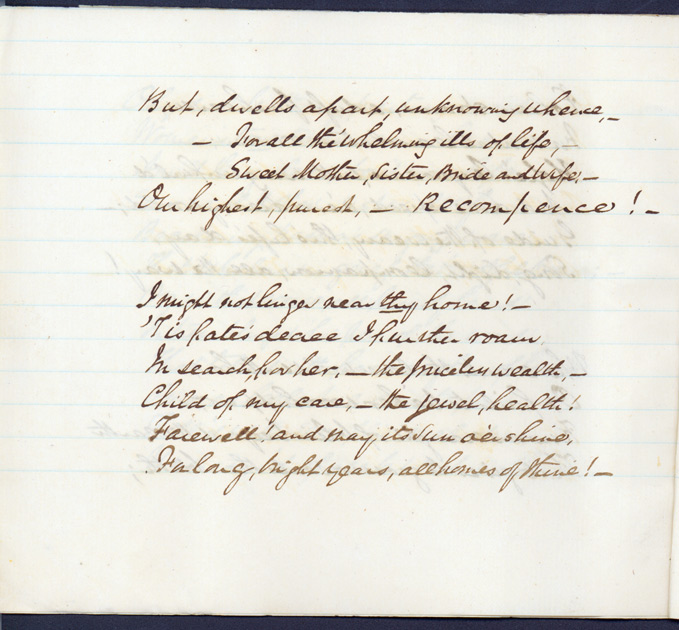 But, dwells apart, unknowing whence, –
– For all the whelming ills of life, –
Sweet Mother, Sister, Bride and Wife, –
Our highest, purest, – Recompence! –
I might not linger near thy home! –
'Tis fate's decree I further roam
In search, for her, – the priceless wealth, –
Child of my care, – the jewel, health!
Farewell! and may its sun o'er shine,
For long, bright years, all homes of thine! –